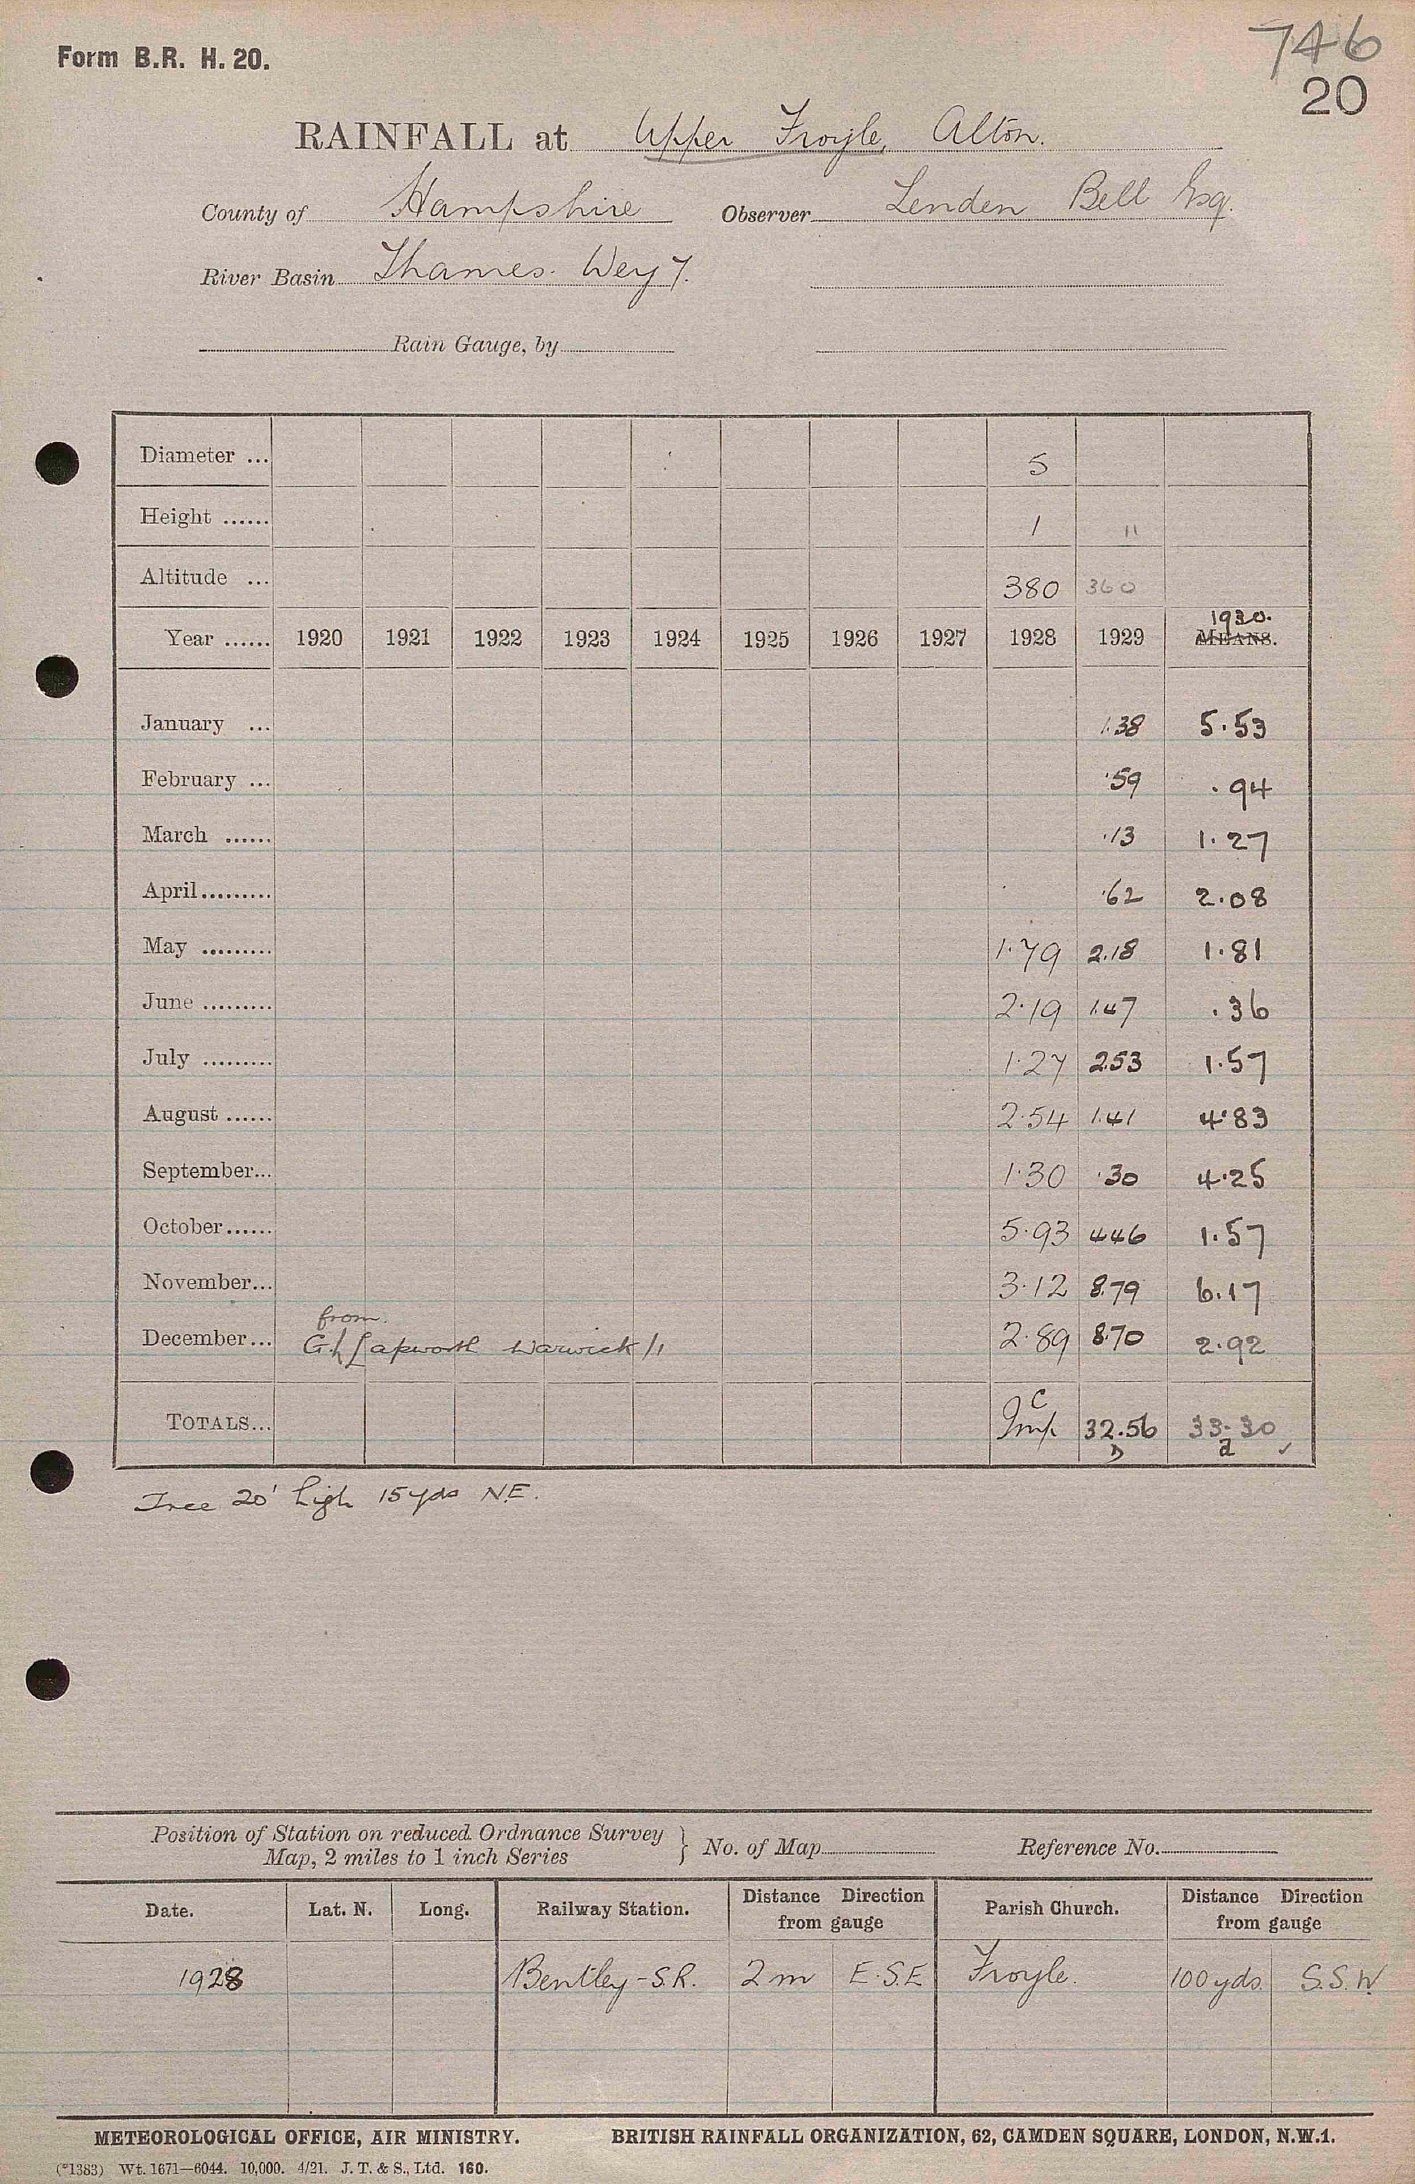 Form B.R. H. 20.
746
20
RAINFALL at Upper Froyle, Alton.
County of Hampshire Observer Lenden Bell Esq.
River Basin Thames. Wey 7.
Rain Gauge, by
Diameter ... 5
Height ...... 1 "
Altitude ... 380 360
1930.
Year ...... 1920 1921 1922 1923 1924 1925 1926 1927 1928 1929 MEANS.
January ... 1.38 5.53
February ... .59 .94
March ...... .13 1.27
April ......... .62 2.08
May ......... 1.79 2.18 1.81
June ......... 2.19 1.47 .36
July ......... 1.27 2.53 1.57
August ...... 2.54 1.41 4.83
September... 1.30 .30 4.25
October...... 5.93 4.46 1.57
November... 3.12 8.79 6.17
from.
December... G.h Lapworth Warwick 2.89 8.70 2.92
C
TOTALS... Imp 32.56 33.30
D a ✓
Tree 20' high 15 yds N.E.
Position of Station on reduced Ordnance Survey
Map, 2 miles to 1 inch Series } No. of Map Reference No.
Date. Lat. N. Long. Railway Station. Distance Direction from gauge Parish Church. Distance Direction from gauge
1928 Bentley - S.R. 2 m E.S.E Froyle. 100 yds. S.S.W.
METEOROLOGICAL OFFICE, AIR MINISTRY. BRITISH RAINFALL ORGANIZATION, 62, CAMDEN SQUARE, LONDON, N.W.1.
(*1383) Wt. 1671—6044. 10,000. 4/21. J. T. & S., Ltd. 160.